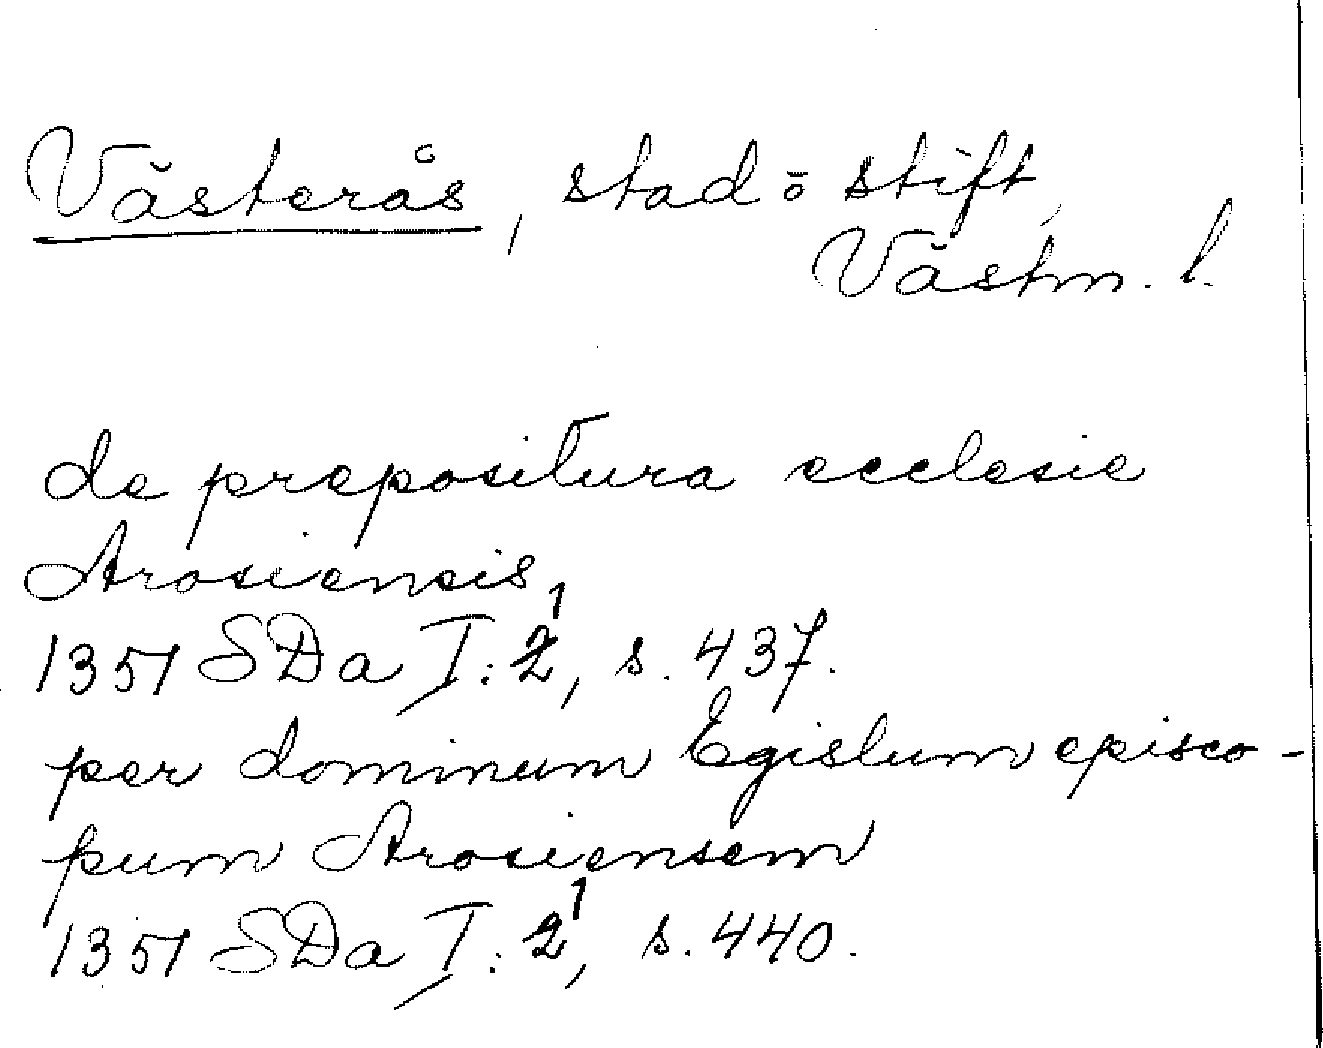 Västerås, stad o stift,
Västm. l.
de prepositura ecclesie
Arosiensis,
1351 SDa I:2¹, s. 437.
per dominum Egislum episco-
pum Arosiensem
1351 SDa I:2¹, s. 440.